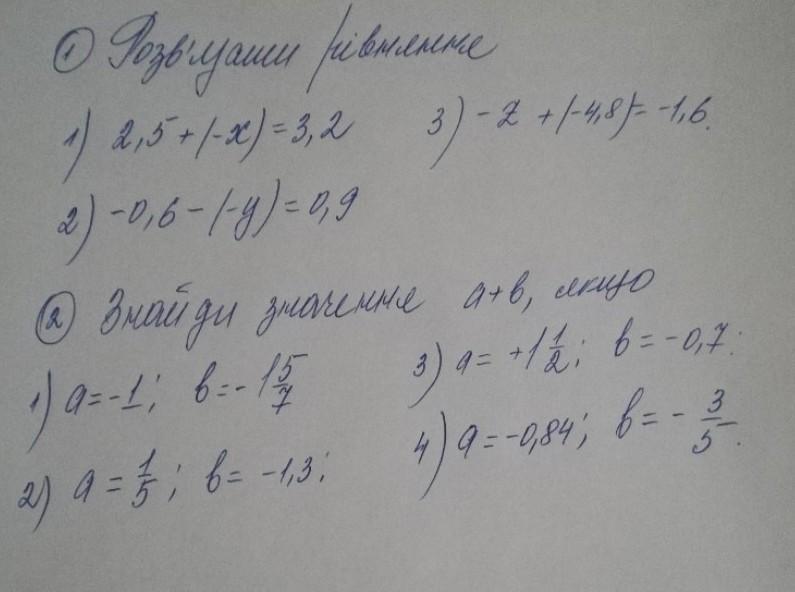 ① Розв'яжи рівняння
1) 2,5+(-x)=3,2
3) -z +(-4,8)=-1,6.
2) -0,6-(-y)=0,9
② Знайди значення a+b, якщо
1) a=-1; b=-1 5/7
3) a= +1 1/2; b=-0,7.
2) a= 1/5; b= -1,3;
4) a=-0,84; b= - 3/5.